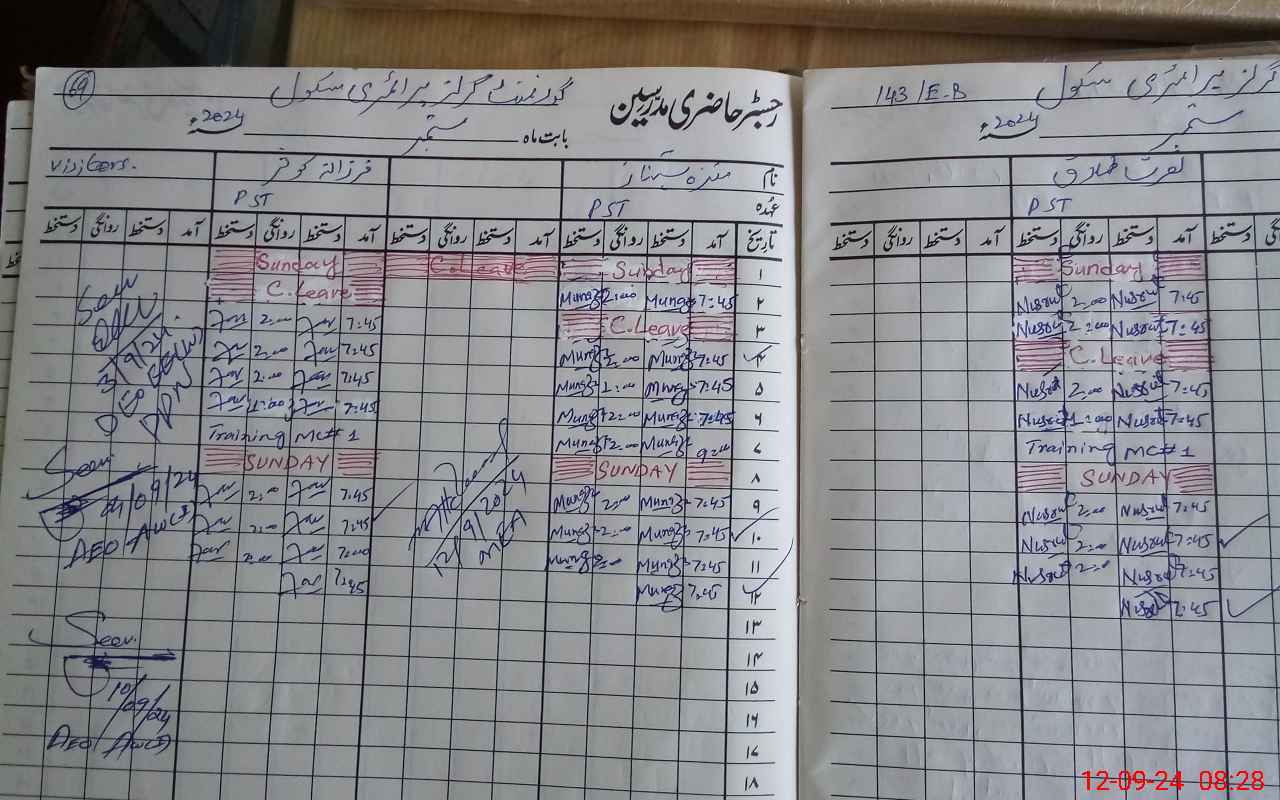 69
گورنمنٹ گرلز پرائمری سکول
رجسٹر حاضری مدرسین
بابت ماہ ستمبر 2024ء
143/E-B گرلز پرائمری سکول
ستمبر 2024ء
نام
Visitors.
PST PST عہدہ
PST
تاریخ آمد دستخط روانگی دستخط آمد دستخط روانگی دستخط آمد دستخط روانگی دستخط آمد دستخط روانگی دستخط
آمد دستخط روانگی دستخط آمد دستخط روانگی دستخط
Sunday C.Leave Sunday ۱
C.Leave Mung 2:00 Mung 7:45 ۲
Far 2:00 Far 7:45 C.Leave ۳
Far 2:00 Far 7:45 Mung 2:00 Mung 7:45 ۴
Far 2:00 Far 7:45 Mung 2:00 Mung 7:45 ۵
Far 12:00 Far 7:45 Mung 2:00 Mung 7:45
Training MC#1 Mung 2:00 Mung 9:00
SUNDAY SUNDAY ۸
Far 2:00 Far 7:45 Mung 2:00 Mung 7:45 ۹
Far 2:00 Far 7:45 Mung 2:00 Mung 7:45 ۱۰
Far 2:00 Far 7:00 Mung 2:00 Mung 7:45 ۱۱
Far 7:45 Mung 7:45 ۱۲
۱۳
۱۴
۱۵
۱۶
۱۸
Seen
3/9/24
DEO
Seen
04/09/24
AEO
Seen
10/09/24
AEO
12/9/2024
MEA
Sunday
Nusrat 2:00 Nusrat 7:45
Nusrat 2:00 Nusrat 7:45
C.Leave
Nusrat 2:00 Nusrat 7:45
Nusrat 12:00 Nusrat 7:45
Training MC#1
SUNDAY
Nusrat 2:00 Nusrat 7:45
Nusrat 2:00 Nusrat 7:45
Nusrat 2:00 Nusrat 7:45
Nusrat 7:45
12-09-24 08:28